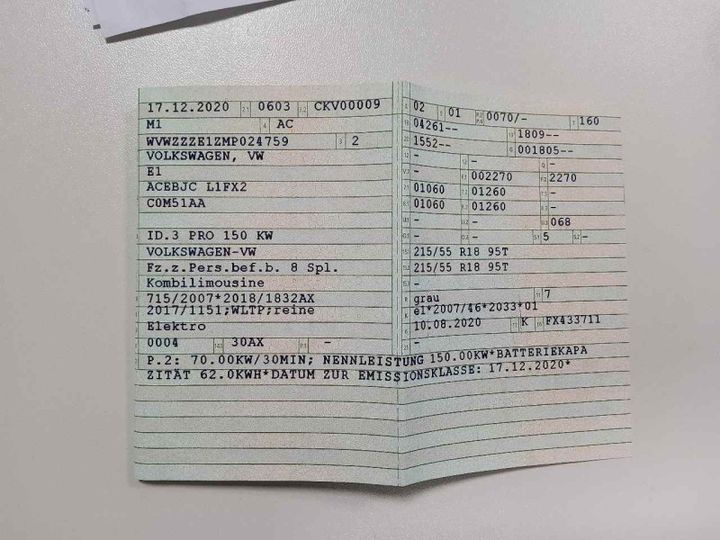 17.12.2020 0603 CKV00009
M1 AC
WVWZZZE1ZMP024759 2
VOLKSWAGEN, VW
E1
ACEBJC L1FX2
C0M51AA
ID.3 PRO 150 KW
VOLKSWAGEN-VW
Fz.z.Pers.bef.b. 8 Spl.
Kombilimousine
715/2007*2018/1832AX
2017/1151;WLTP;reine
Elektro
0004 30AX -
02 01 0070/- 160
04261-- 1809--
1552-- 001805--
- - -
- 002270 2270
01060 01260 -
01060 01260 -
- - 068
- - 5 -
215/55 R18 95T
215/55 R18 95T
-
grau 7
e1*2007/46*2033*01
10.08.2020 K FX433711
-
P.2: 70.00KW/30MIN; NENNLEISTUNG 150.00KW*BATTERIEKAPA
ZITÄT 62.0KWH*DATUM ZUR EMISSIONSKLASSE: 17.12.2020*